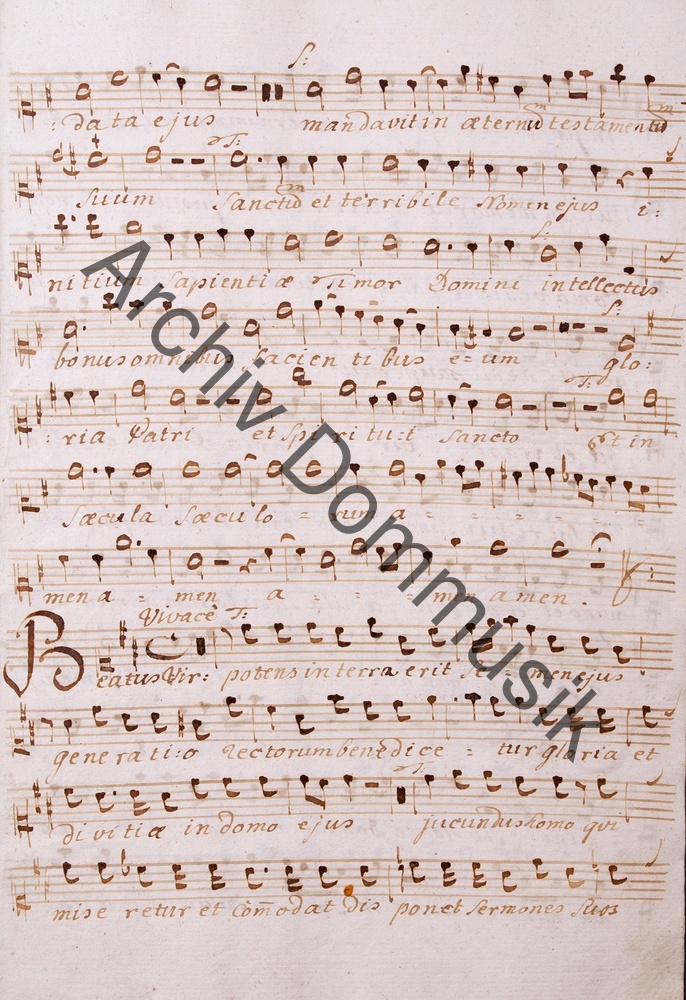 S:
: data ejus mandavit in æternũ testamentũ
T:
suum Sanctũ et terribile Nomen ejus i:
S:
nitium sapientiæ Timor Domini intellectus
S:
bonus omnibus facien tibus e=um glo:
T:
: ria Patri et Spiritu:i Sancto Et in
sæcula sæculo = rum a = = = = = =
men a = men a = = = men amen.
Vivace T:
Beatus Vir: potens in terra erit se = men ejus
generati:o rectorum benedice = tur gloria et
T:
divitiæ in domo ejus jucundus homo qui
mise retur et Com̃odat dis ponet sermones suos
Archiv Dommusik